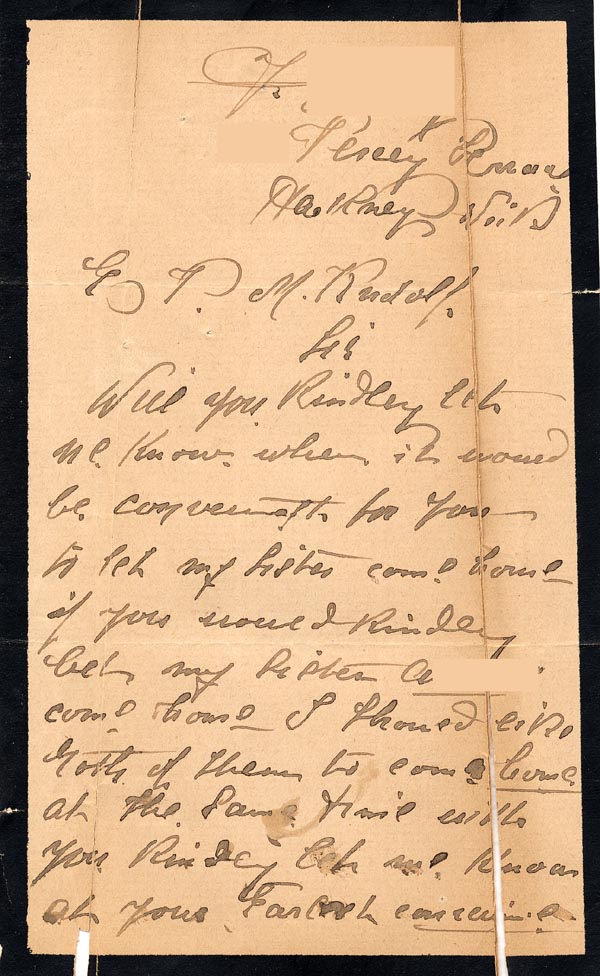 F.
Percy Road
Hackney Wick
E. P. M. Rudolf
Sir
Will you Kindley let
me Know when it would
be conveneint for you
to let my Sister come home
if you woued Kindley
let my Sister A
come home I shoued like
both of them to come home
at the same time will
you Kindley let me Know
at your